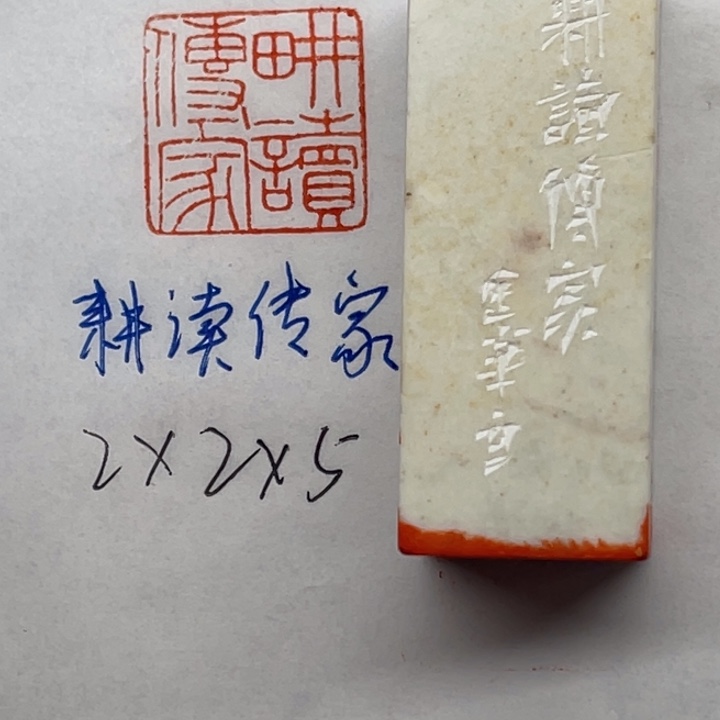 畊讀
傳家
耕读传家
2×2×5
耕讀傳家